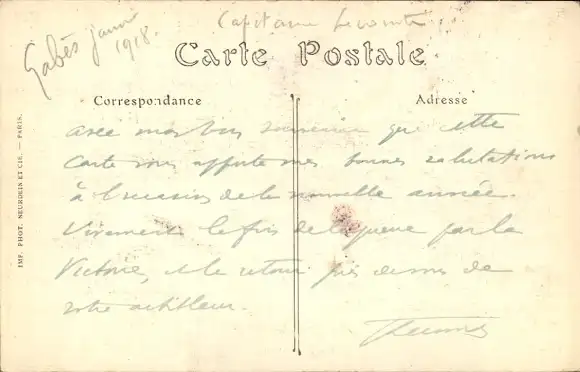 Gabès janvier 1918.
Capitaine Lecomte
Carte Postale
Correspondance
Adresse
avec mon bon souvenir que cette
carte vous apporte mes bonnes salutations
à l'occasion de la nouvelle année.
Vivement la fin de la guerre par la
Victoire, et le retour près de
votre artilleur.
IMP. PHOT. NEURDEIN ET CIE. — PARIS.